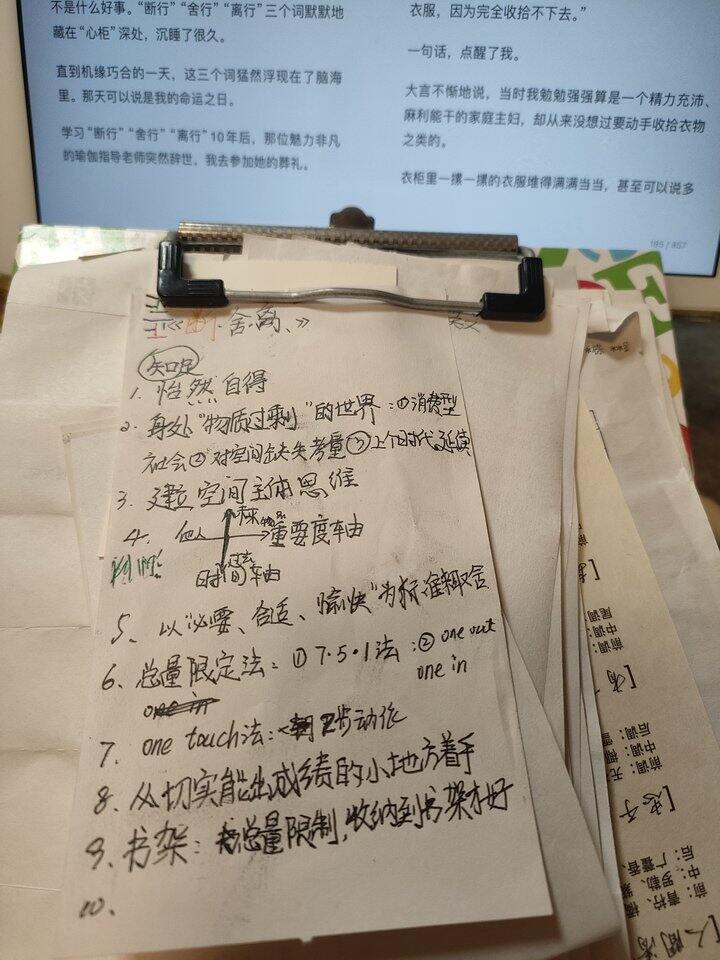 不是什么好事。“断行”“舍行”“离行”三个词默默地
藏在“心柜”深处，沉睡了很久。
直到机缘巧合的一天，这三个词猛然浮现在了脑海
里。那天可以说是我的命运之日。
学习“断行”“舍行”“离行”10年后，那位魅力非凡
的瑜伽指导老师突然辞世，我去参加她的葬礼。
衣服，因为完全收拾不下去。”
一句话，点醒了我。
大言不惭地说，当时我勉勉强强算是一个精力充沛、
麻利能干的家庭主妇，却从来没想过要动手收拾衣物
之类的。
衣柜里一摞一摞的衣服堆得满满当当，甚至可以说多
185 / 857
《断·舍·离、》
知足
1. 怡然自得
2. 身处“物质过剩”的世界：①消费型
社会②对空间缺失考量③上个时代延续
3. 建立空间主体思维
4. 他人 未来 物品 重要度车由
过去
时间车由
5、以“必要、合适、愉快”为标准取舍
6、总量限定法：①7·5·1法：②one out
one in
one in
7、one touch法：<2步动作
8、从切实能出成绩的小地方着手
9、书架：总量限制，收纳到书架才好
10、
前调：
中调：
尾调：
前调：
中调：
后调：
前：青柠、
中：罗勒、
后：广藿香、